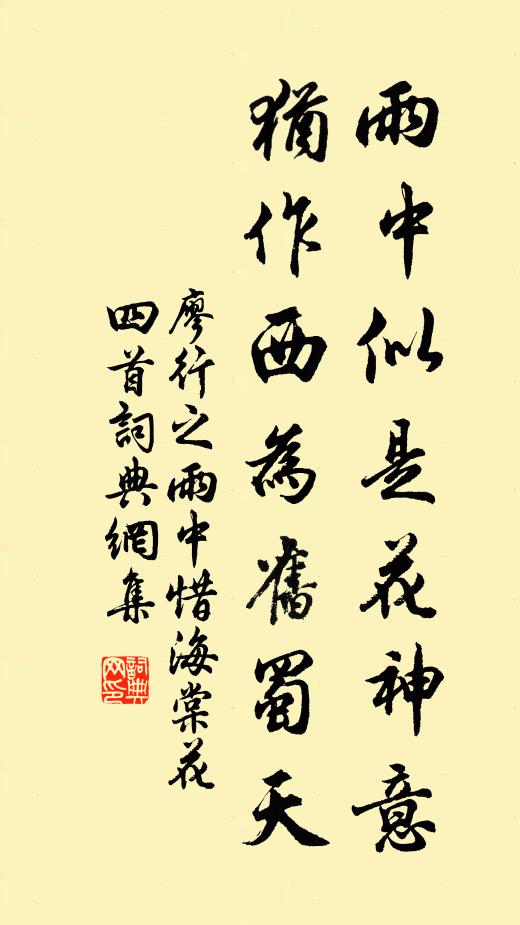 雨中似是花神意
猶作西為舊蜀天
廖行之雨中惜海棠花
四首詞典網集
詞典網印